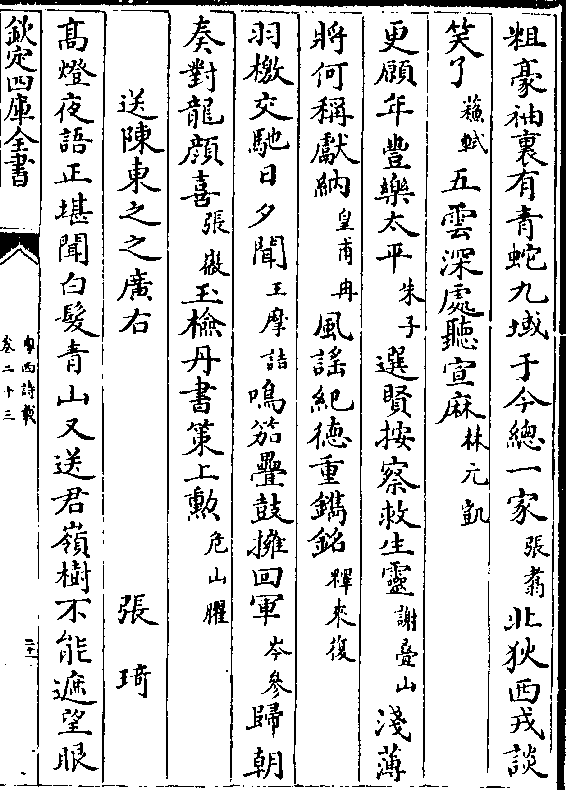 粗豪袖裏有青蛇九域于今總一家張翥北狄西戎談
笑了蘓軾五雲深處聽宣麻林元凱
更願年豐樂太平朱子選賢按察救生靈謝疊山淺薄
將何稱獻納皇甫冉風謠紀德重鐫銘釋來復
羽檄交馳日夕聞王摩詰鳴笳疊鼓擁回軍岑參歸朝
奏對龍顔喜張嶽玉檢丹書策上勲危山臞
送陳東之之廣右 張琦
髙燈夜語正堪聞白髮青山又送君嶺樹不能遮望眼
欽定四庫全書
粤西詩載
卷二十三